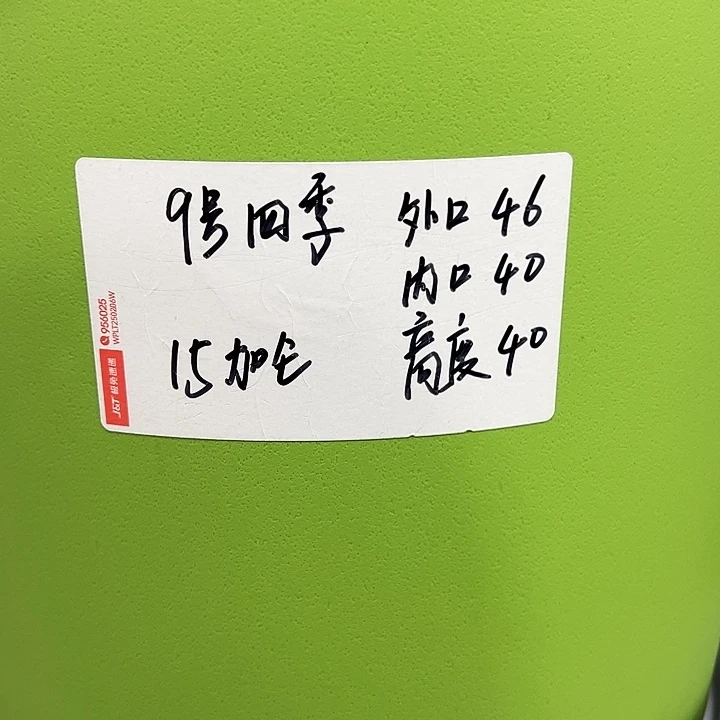 9号四季 外口 46
内口 40
15加仑 高度 40
956025
WPLT250206W
J&T 极兔速递